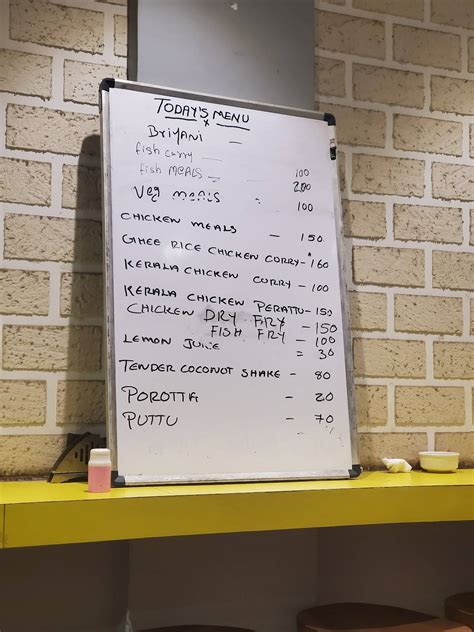 TODAY'S MENU
Briyani –
fish curry – 100
fish MEALS – 200
Veg meals – 100
CHICKEN MEALS – 150
GHEE RICE CHICKEN CURRY – 160
KERALA CHICKEN CURRY – 100
KERALA CHICKEN PERATTU – 150
CHICKEN DRY FRY – 150
FISH FRY – 100
LEMON JUICE = 30
TENDER COCONUT SHAKE – 80
POROTTA – 20
PUTTU – 70